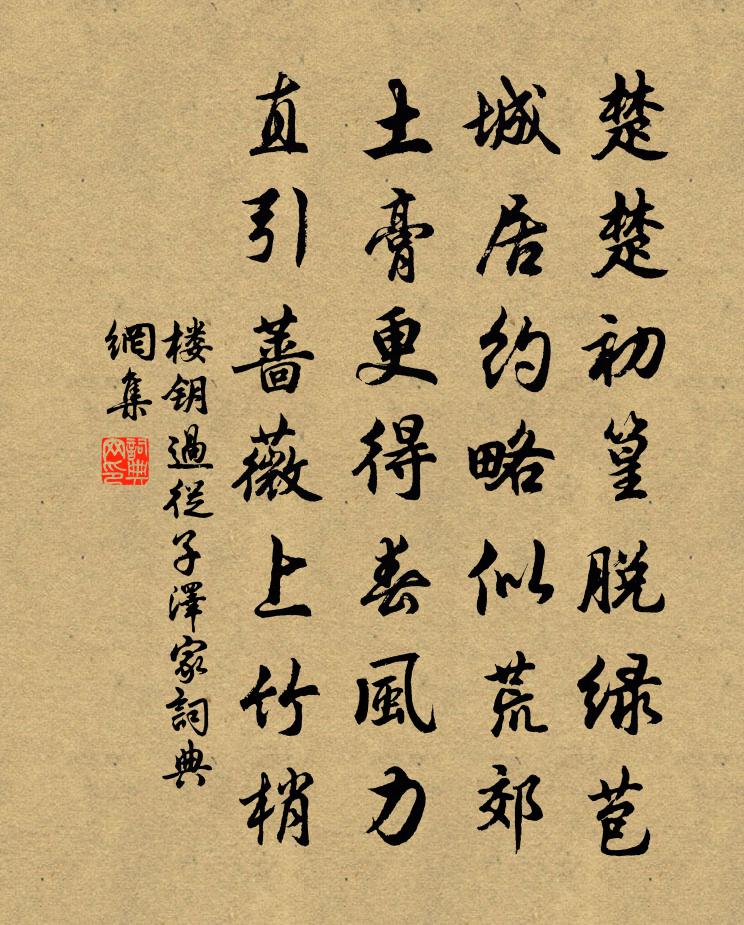 楚楚初篁脱绿苞
城居约略似荒郊
土膏更得春風力
直引蔷薇上竹梢
楼钥過従子澤家詞典
網集
詞典
网印